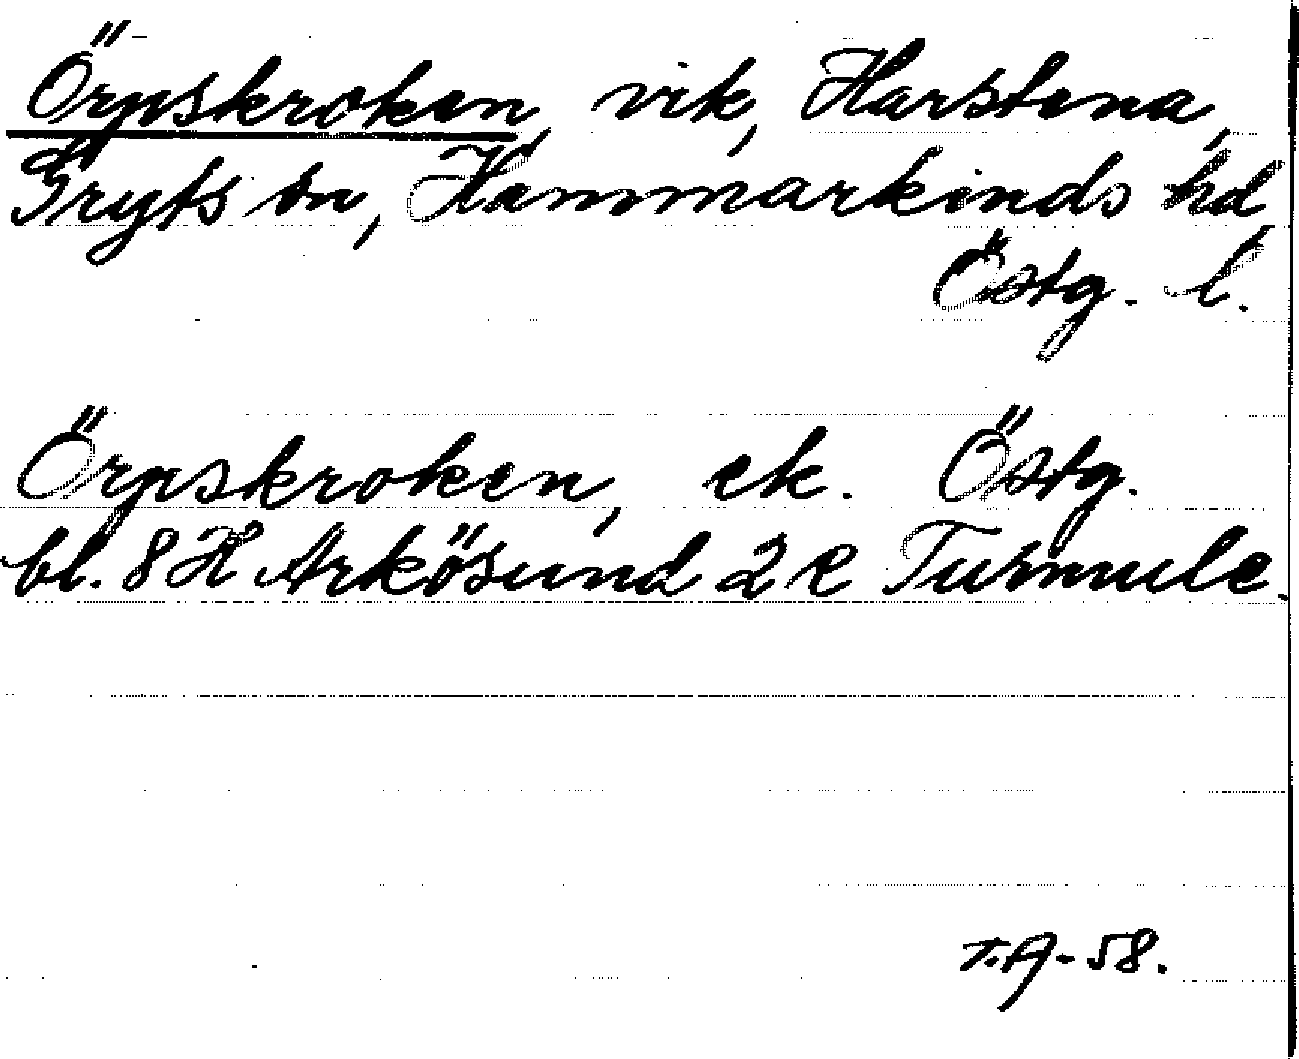 Örpskroken, vik, Harstena,
Gryts sn, Hammarkinds hd
Östg. l.
Örpskroken, ek. Östg.
bl. 8 H Arkösund 2 e Turmule.
T.A-58.